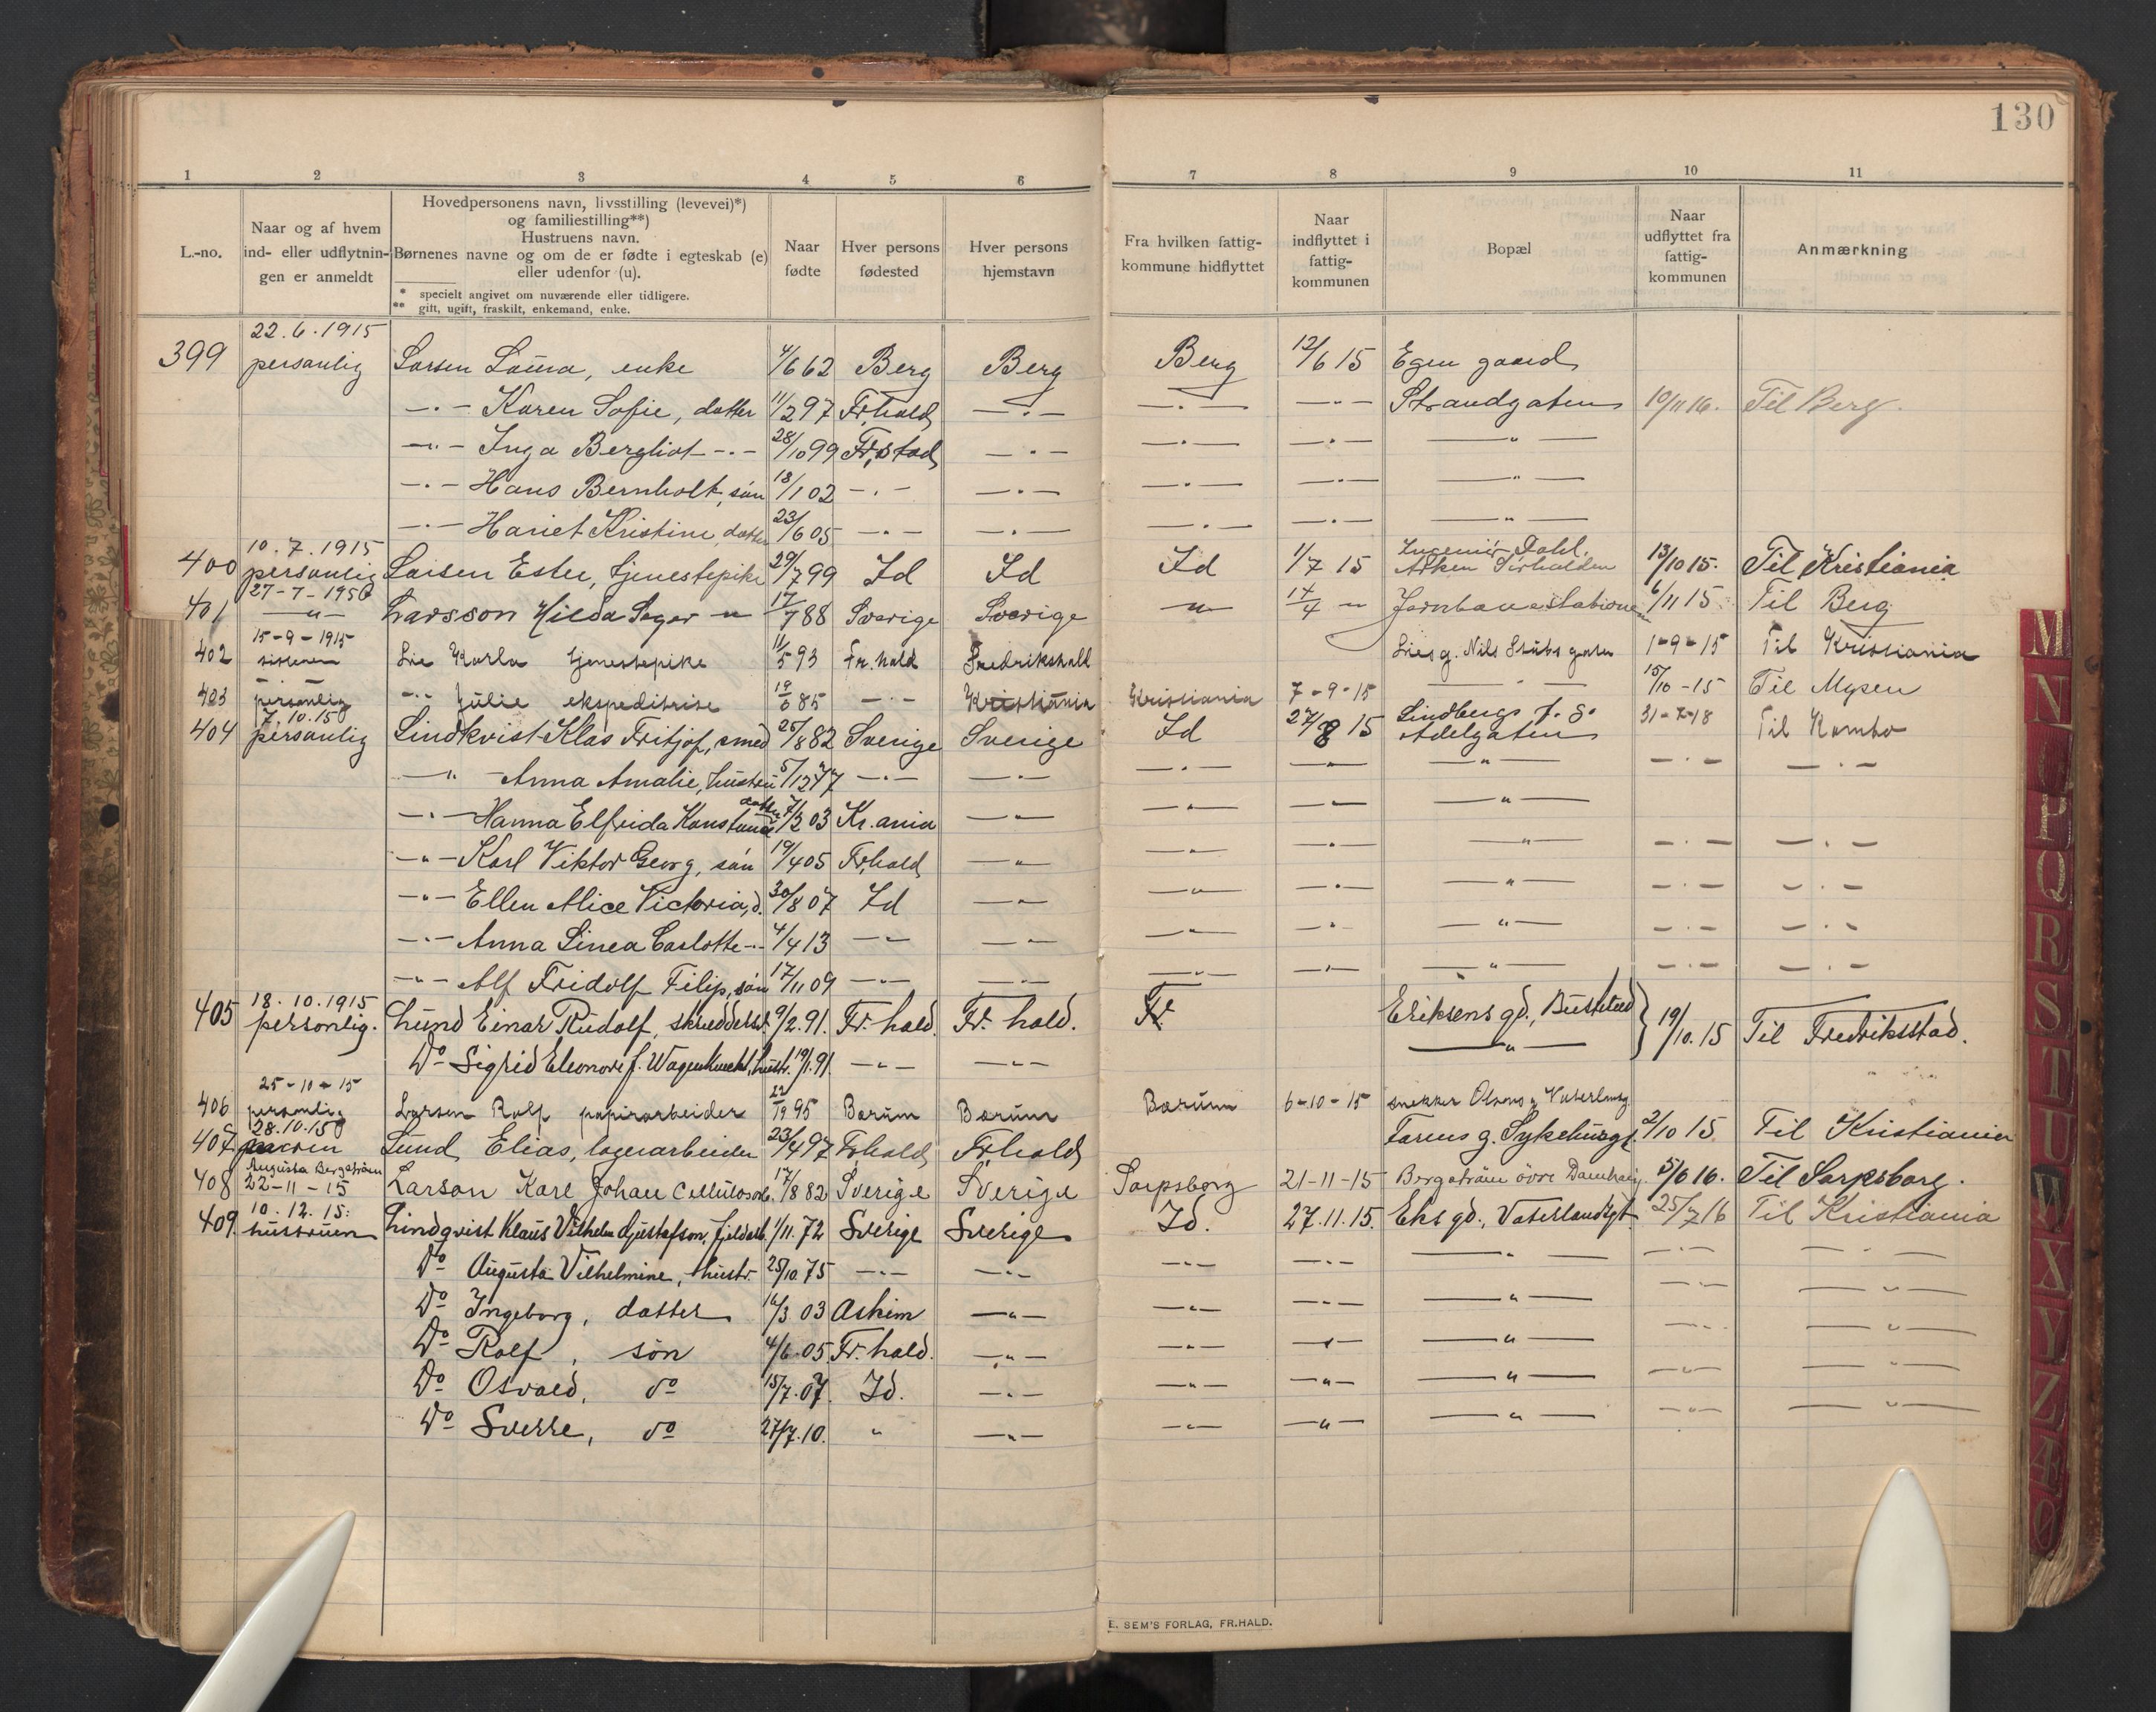 130
1 2 3 4 5 6 7 8 9 10 11
L.-no.
Naar og af hvem
ind- eller udflytnin-
gen er anmeldt
Hovedpersonens navn, livsstilling (levevei)*)
og familiestilling**)
Hustruens navn.
Børnenes navne og om de er fødte i egteskab (e)
eller udenfor (u).
* specielt angivet om nuværende eller tidligere.
** gift, ugift, fraskilt, enkemand, enke.
Naar
fødte
Hver persons
fødested
Hver persons
hjemstavn
Fra hvilken fattig-
kommune hidflyttet
Naar
indflyttet i
fattig-
kommunen
Bopæl
Naar
udflyttet fra
fattig-
kommunen
Anmærkning
22.6.1915
399 personlig Larsen Laura, enke 4/6 62 Berg Berg Berg 12/6 15 Egen gaard
—"— Karen Sofie, datter 11/2 97 Fr,hald —"— —"— —"— Strandgaten 10/11 16. Til Berg.
—"— Inga Bergliot —"— 28/10 99 Fr,stad —"— —"— —"— —"—
—"— Hans Bernholt, sön 18/1 02 —"— —"— —"— —"— —"—
—"— Hariet Kristine, datter 23/6 05 —"— —"— —"— —"— —"—
10.7.1915
400 personlig Larsen Ester, tjenestepike 29/7 99 Id Id Id 1/7 15 Ingeniör Dahl. 13/10 15. Til Kristiania
27-7-1950
401 —"— Larsson Hilda Seger —"— 17/7 88 Sverige Sverige —"— 14/4 —"— Jernbanestationen 6/11 15 Til Berg
15-9-1915
402 Lie Karla tjenestepike 11/5 93 Fr.hald Fredrikshald Lies g. Nils Stubs gaten 1-9-15 Til Kristiania
403 personlig —"— Julie ekspeditrise 19/6 85 —"— Kristiania Kristiania 7-9-15 —"— 15/10-15 Til Mysen
7.10.15
404 personlig Lindkvist Klas Fritjof, smed 25/8 82 Sverige Sverige Id 27/8 15 Lindbergs f.g. 31-7-18 Til Kambo
Adelgaten
—"— Anna Amalie, hustru 5/12 77 —"— —"— —"— —"— —"— —"— —"—
—"— Hanna Elfrida Konstance datter 7/2 03 Kr.ania —"— —"— —"— —"—
—"— Karl Viktor Georg, sön 19/4 05 Fr,hald —"— —"— —"— —"— —"— —"—
—"— Ellen Alice Victoria, d. 30/8 07 Id —"— —"— —"— —"— —"— —"—
—"— Anna Linea Carlotte —"— 4/4 13 —"— —"— —"— —"— —"— —"— —"—
—"— Alf Fridolf Filip, sön 17/11 09 —"— —"— —"— —"— —"— —"— —"—
18.10.1915
405 personlig. Lund Einar Rudolf, skreddersv. 9/2.91. Fr. hald. Fr. hald. Fr. Eriksens gd., Busterud } 19/10.15 Til Fredriksstad.
Do Sigrid Eleonore f. Wagenknecht, hustr. 19/1.91. —"— —"— —"—
25-10-15
406 personlig Larsen Rolf papirarbeider 95 Bærum Bærum Bærum 6-10-15 snekker Olsens g. Vaterlandsg
28.10.15
407 Lund, Elias, lagerarbeider 23/4 97 Fr,hald Fr,hald Farens g. Sykehusgt. 2/10 15. Til Kristiania
Augusta Bergström
408 22-11-15 Larson Karl Johan Cellulosearb. 17/8 82 Sverige Sverige Sarpsborg 21-11-15 Bergström övre Damhaug. 5/6 16. Til Sarpsborg.
10.12.15.
409. hustruen Lindqvist Klaus Vilhelm Gustafson, fjeldarb. 1/11.72 Sverige Sverige Id. 27.11.15. Eks gd., Vaterlandsgt. 25/7 16 Til Kristiania
Do Augusta Vilhelmine, hustr. 25/10.75 —"— —"— —"— —"— —"— —"— —"—
Do Ingeborg, datter 16/3 03 Askim —"— —"— —"— —"— —"— —"—
Do Rolf, sön 4/6.05. Fr. hald. —"— —"— —"— —"— —"— —"—
Do Osvald, do 15/7.07. Id. —"— —"— —"— —"— —"— —"—
Do Sverre, do 27/7.10. " —"— —"— —"— —"— —"— —"—
E. SEM'S FORLAG, FR.HALD.
M
N
O
P
Q
R
S
T
U
W
X
Y
Z
Æ
Ø